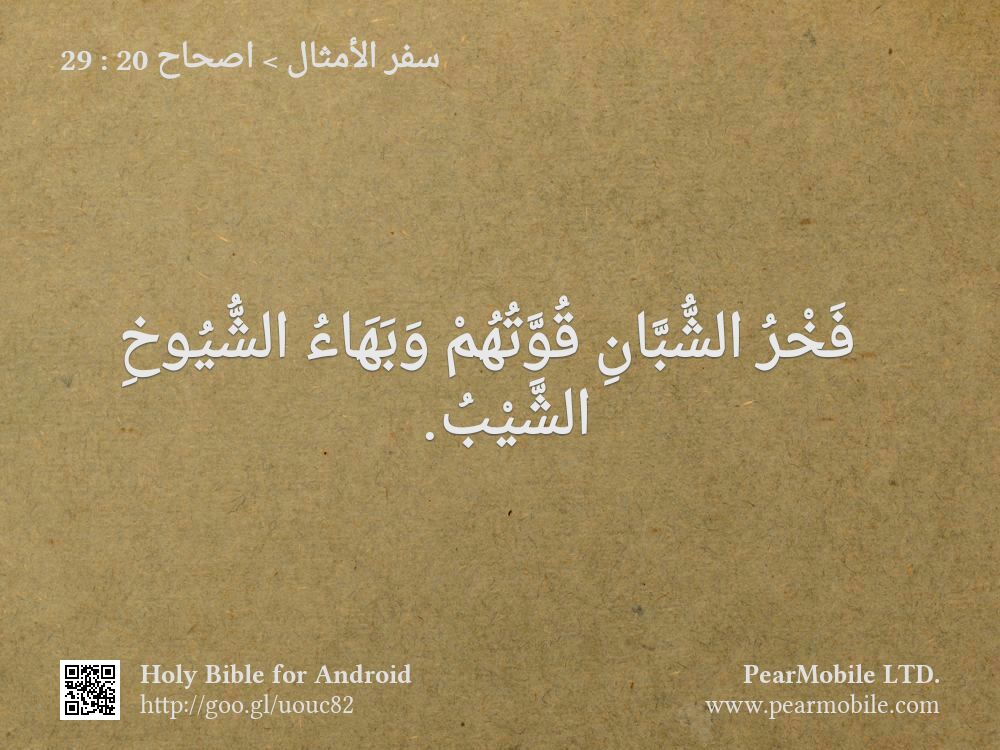 سفر الأمثال > اصحاح 20 : 29
فَخْرُ الشُّبَّانِ قُوَّتُهُمْ وَبَهَاءُ الشُّيُوخِ
الشَّيْبُ.
Holy Bible for Android
http://goo.gl/uouc82
PearMobile LTD.
www.pearmobile.com